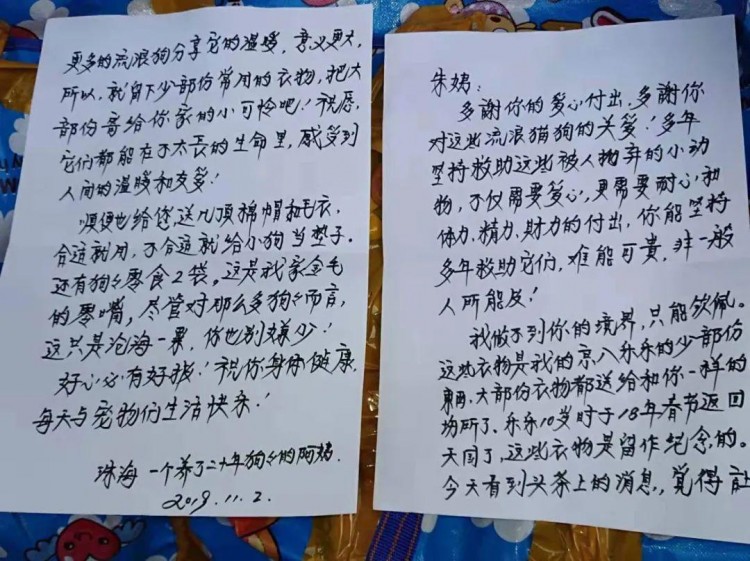 朱姨：
多謝你的爱心付出，多謝你
对这些流浪猫狗的关爱！多年
坚持救助这些被人抛弃的小动
物，不仅需要爱心，更需要耐心和
体力、精力、财力的付出，你能坚持
多年救助它们，难能可貴，非一般
人所能及！
我做不到你的境界，只能钦佩。
这些衣物是我的京八乐乐的少部份
東西，大部份衣物都送给和你一样的
场所了，乐乐10岁时于18年春节返回
天国了，这些衣物是留作纪念的。
今天看到头条上的消息，觉得让
更多的流浪狗分享它的温暖，意义更大，
所以，就留下少部份常用的衣物，把大
部份寄给你家的小可怜吧！祝愿
它们都能在不太长的生命里，感受到
人间的温暖和友爱！
顺便也给您送几顶棉帽和毛衣，
合适就用，不合适就给小狗当垫子。
还有狗狗零食2袋。这是我家金毛
的零嘴，尽管对那么多狗狗而言，
这只是沧海一粟，你也别嫌少！
好心必有好报！祝你身体健康，
每天与宠物们生活快乐！
珠海 一个养了二十年狗狗的阿姨.
2019.11.2.